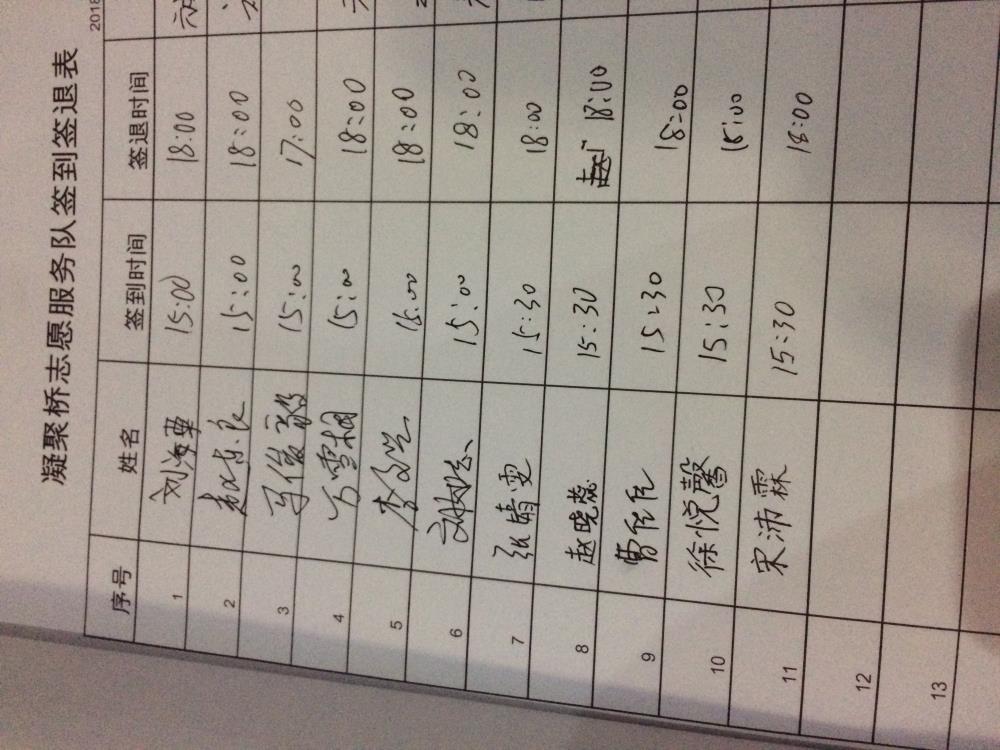 凝聚桥志愿服务队签到签退表
2018
序号 姓名 签到时间 签退时间
1 刘海 15:00 18:00
2 15:00 18:00
3 马俊毅 15:00 17:00
4 雪 15:00 18:00
5 李 18:00
6 15:00 18:00
7 张婧雯 15:30 18:00
8 赵晓蕊 15:30 18:00
9 曹任任 15:30 18:00
10 徐悦馨 15:30 18:00
11 宋沛霖 15:30 18:00
12
13